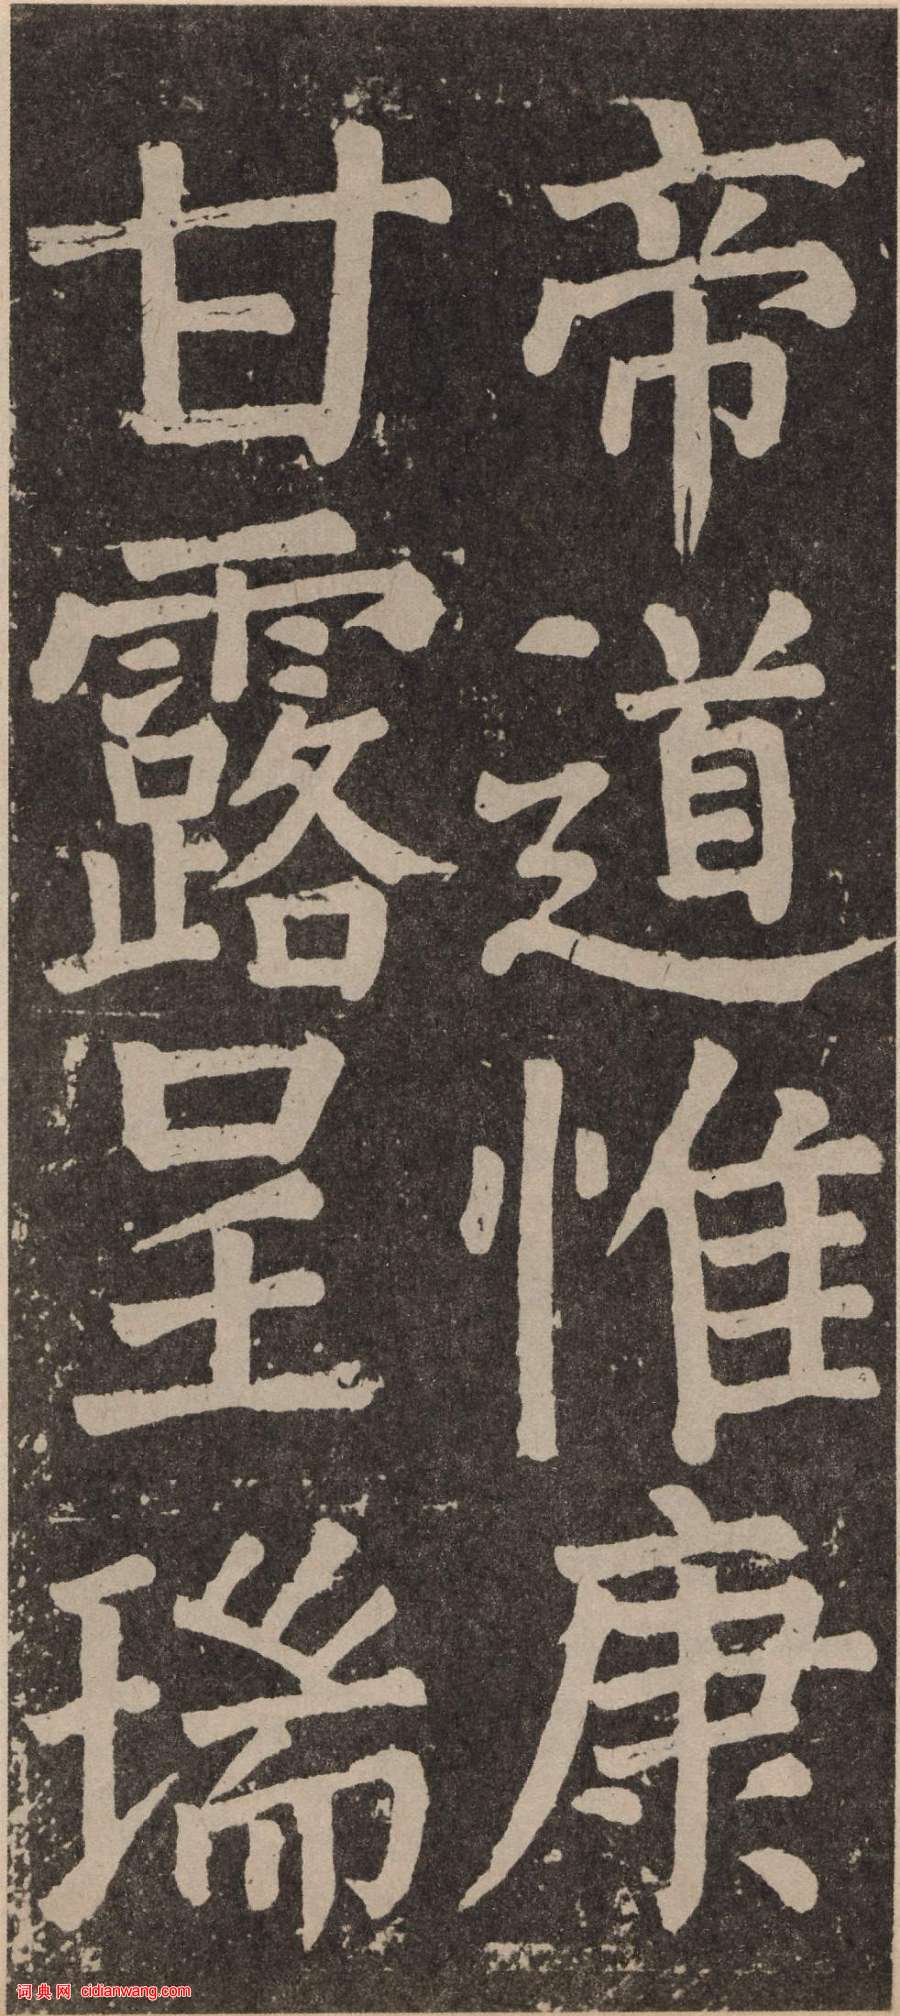 帝道惟康
甘露呈瑞
词典网 cidianwang.com